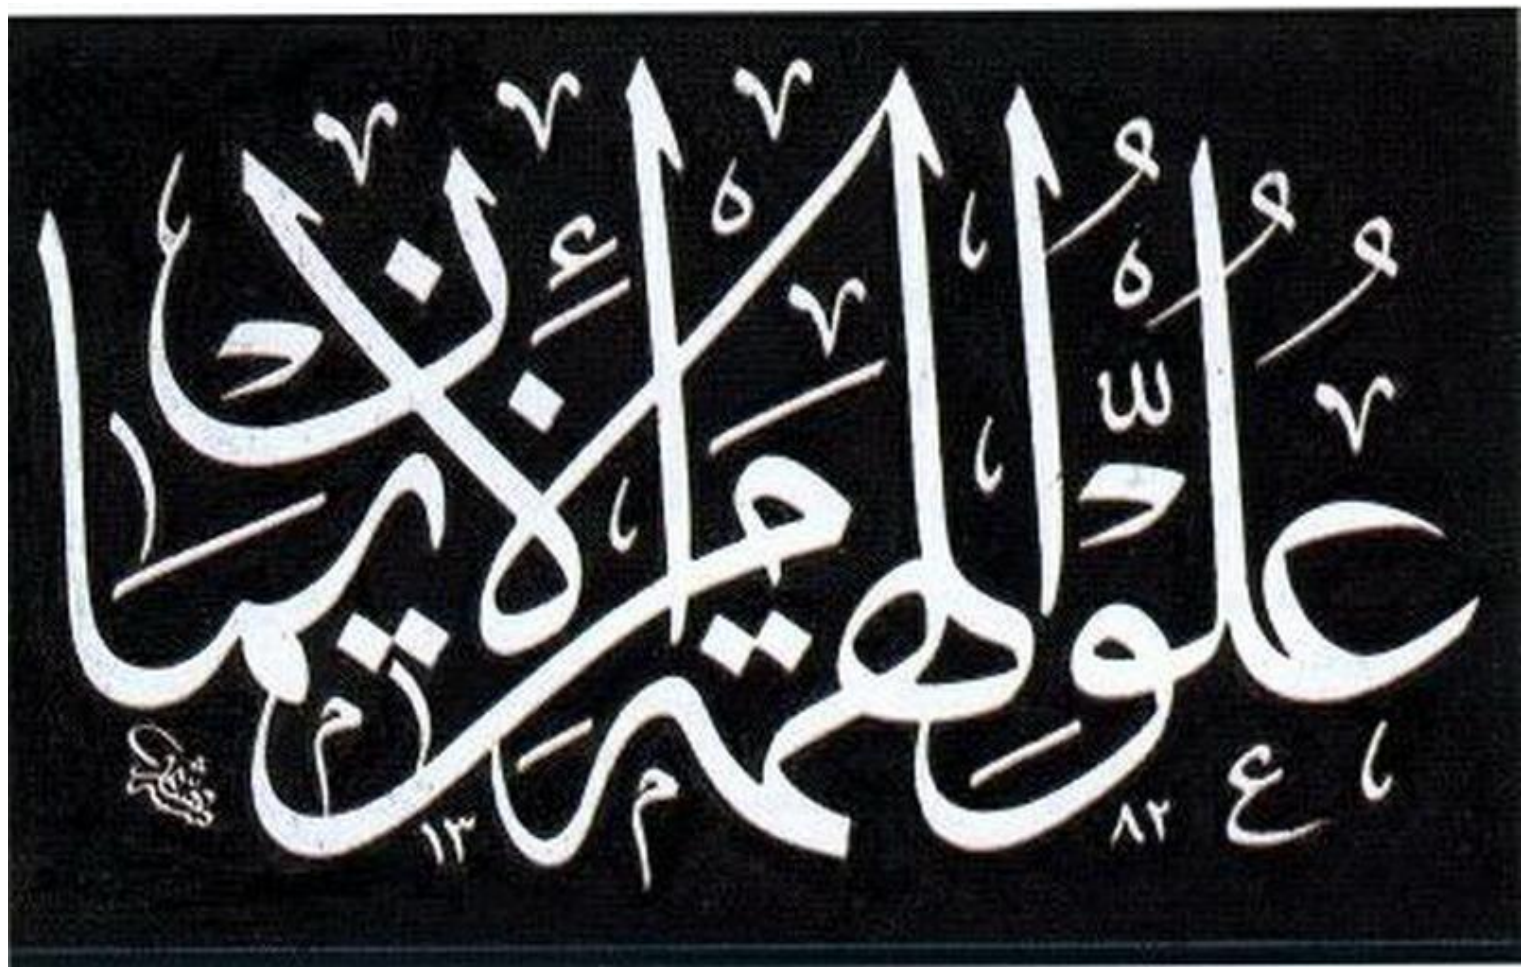 عُلُوُّ الهِمَّةِ مِنَ الإِيمَانِ
١٣٨٢